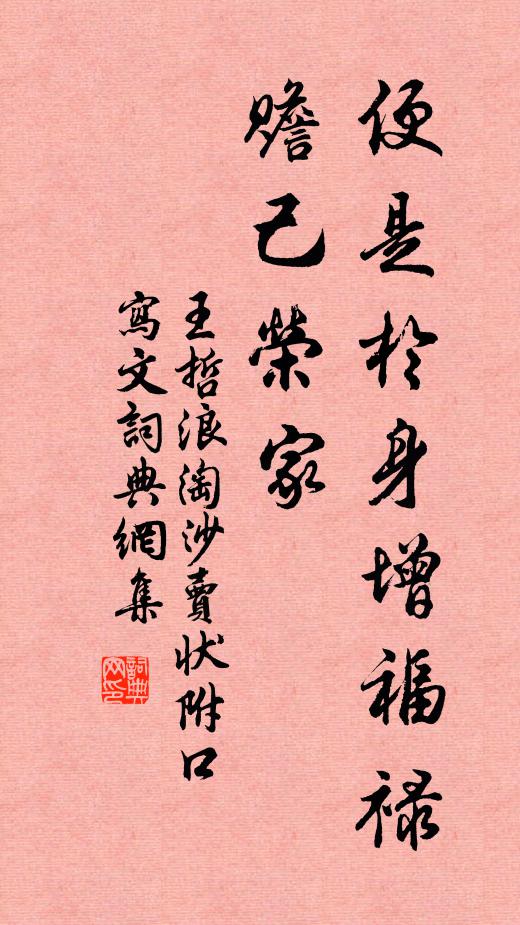 便是於身增福禄
贍己榮家
王哲浪淘沙賣状附口
寫文詞典網集
詞典网印